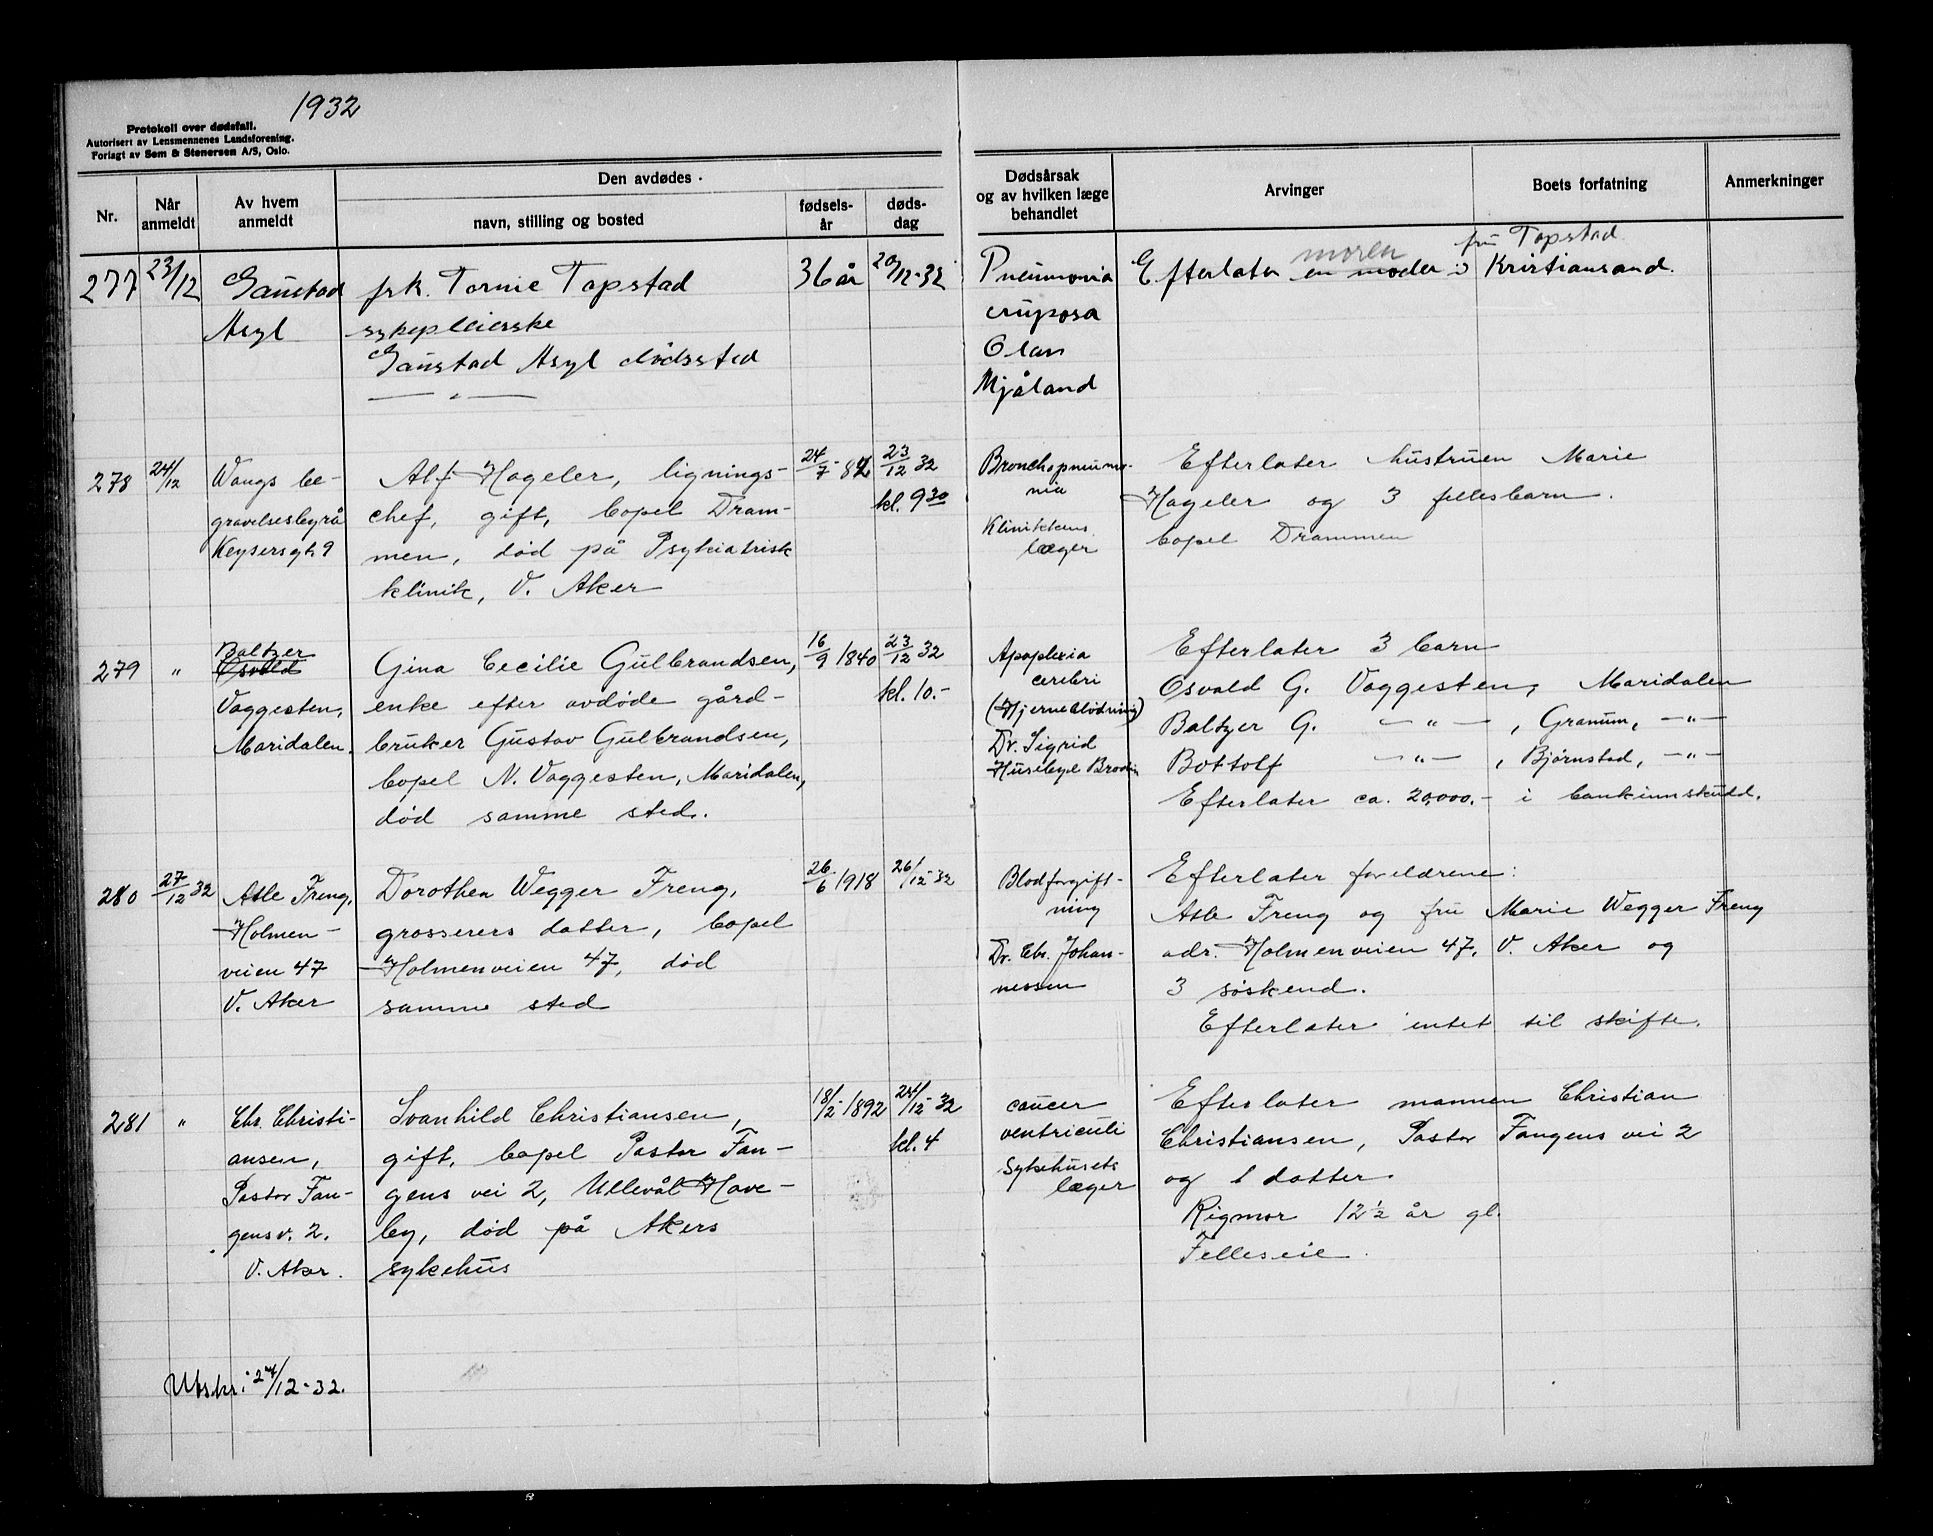 1932
Protokoll over dødsfall.
Autorisert av Lensmennenes Landsforening.
Forlagt av Sem & Stenersen A/S, Oslo.
Nr.
Når anmeldt
Av hvem anmeldt
Den avdødes
navn, stilling og bosted
fødsels-år
døds-dag
Dødsårsak og av hvilken læge behandlet
Arvinger
Boets forfatning
Anmerkninger
277
23/12
Gaustad
Asyl
frk. Tornie Topstad
sykepleierske
Gaustad Asyl dødssted
— " —
36 år
20/12-32
Pneumonia
cruposa
Olav
Mjåland
moren fru Topstad
Efterlater en moder i Kristiansand.
278
24/12
Wangs be-
gravelsesbyrå
Keysersgt. 9
Alf Hageler, lignings-
chef, gift, bopel Dram-
men, død på Psykiatrisk
klinik, V. Aker
24/7-82
23/12 32
kl. 9 30
Bronchopneumo-
nia
Klinikkens
læger
Efterlater hustruen Marie
Hageler og 3 fellesbarn.
bopel Drammen
279
"
Baltzer
Osvald
Vaggesten,
Maridalen.
Gina Cecilie Gulbrandsen,
enke efter avdøde gård-
bruker Gustav Gulbrandsen,
bopel N. Vaggesten, Maridalen,
død samme sted.
16/9 1840
23/12 32
kl. 10.-
Apoplexia
cerebri
(Hjerneblødning)
Dr. Sigrid
Husebye Brodin
Efterlater 3 barn
Osvald G. Vaggesten, Maridalen
Baltzer G. — " — , Granum, — " —
Bottolf — " — , Bjørnstad, — " —
Efterlater ca. 20,000.- i bankinnskudd.
280
27/12 32
Asle Freng,
Holmen-
veien 47
V. Aker
Dorothea Wegger Freng,
grosserers datter, bopel
Holmenveien 47, død
samme sted
26/6 1918
26/12-32
Blodforgift-
ning
Dr. Chr. Johan-
nessen
Efterlater foreldrene:
Asle Freng og fru Marie Wegger Freng
adr. Holmenveien 47, V. Aker og
3 søskend.
Efterlater intet til skifte.
281
"
Chr. Christi-
ansen,
Pastor Fan-
gens v. 2.
V. Aker.
Svanhild Christiansen,
gift, bopel Pastor Fan-
gens vei 2, Ullevål Have-
by, død på Akers
sykehus
18/2-1892
24/12-32
kl. 4
cancer
ventriculi
Sykehusets
læger
Efterlater mannen Christian
Christiansen, Pastor Fangens vei 2
og 1 datter
Rigmor 12½ år gl.
Felleseie.
Utskr. 27/12-32.